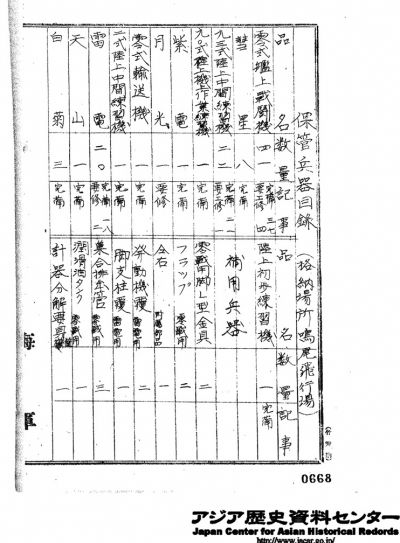 保管兵器目録(格納場所鳴尾飛行場)
品名 数量 記事
零式艦上戦闘機 四一 完備 三七 要修 四
星 八
九三式陸上中間練習機 二二
九〇式機上作業練習機 一 完備
紫電 一 完備
月光 一 要修
零式輸送機 一 完備
二式陸上中間練習機 一 完備
雷電 二〇 完備 一八 要修 二
天山 一 完備
白菊 三 完備
品名 数量 記事
陸上初歩練習機 一 完備
補用兵器
零戦用脚L型金具 二
フラップ 零戦用 二
仝右 一
発動機覆 雷電用 二
脚支柱覆 雷電用 一
集合排気管 零戦用 三
潤滑油タンク 零戦用 一
計器分解要具 一
海軍
0668
アジア歴史資料センター
Japan Center for Asian Historical Records
http://www.jacar.go.jp/